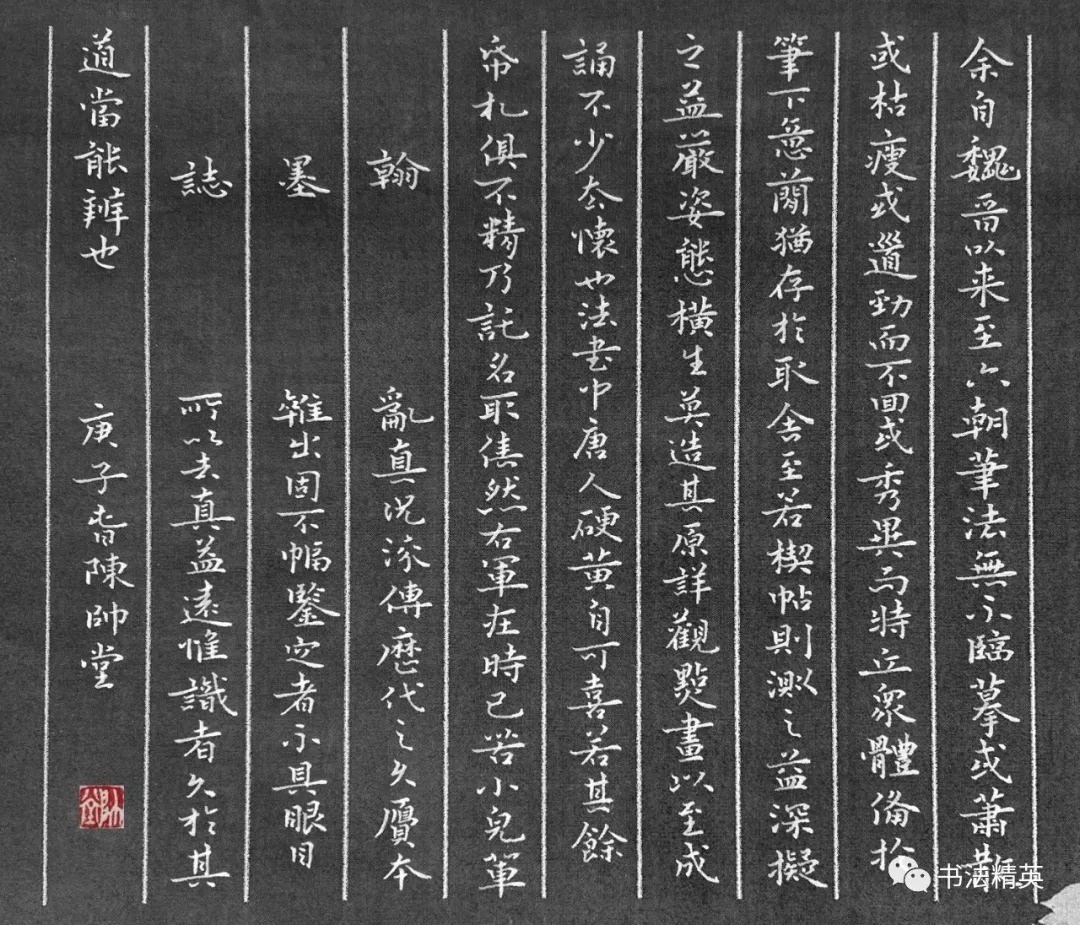 余自魏晉以来至六朝筆法無不臨摹或蕭散
或枯瘦或遒勁而不回或秀異而特立眾體備於
筆下意簡猶存於取舍至若楔帖則測之益深擬
之益嚴姿態橫生莫造其原詳觀點畫以至成
誦不少去懷也法書中唐人硬黄自可喜若其餘
帋札俱不精乃託名取售然右軍在時已苦小兒輩
亂真況流傳歷代之久贗本
雜出固不幅鑒定者不具眼目
所以去真益遠惟識者久於其
道當能辨也
翰
墨
誌
庚子春陳帥堂
书法精英